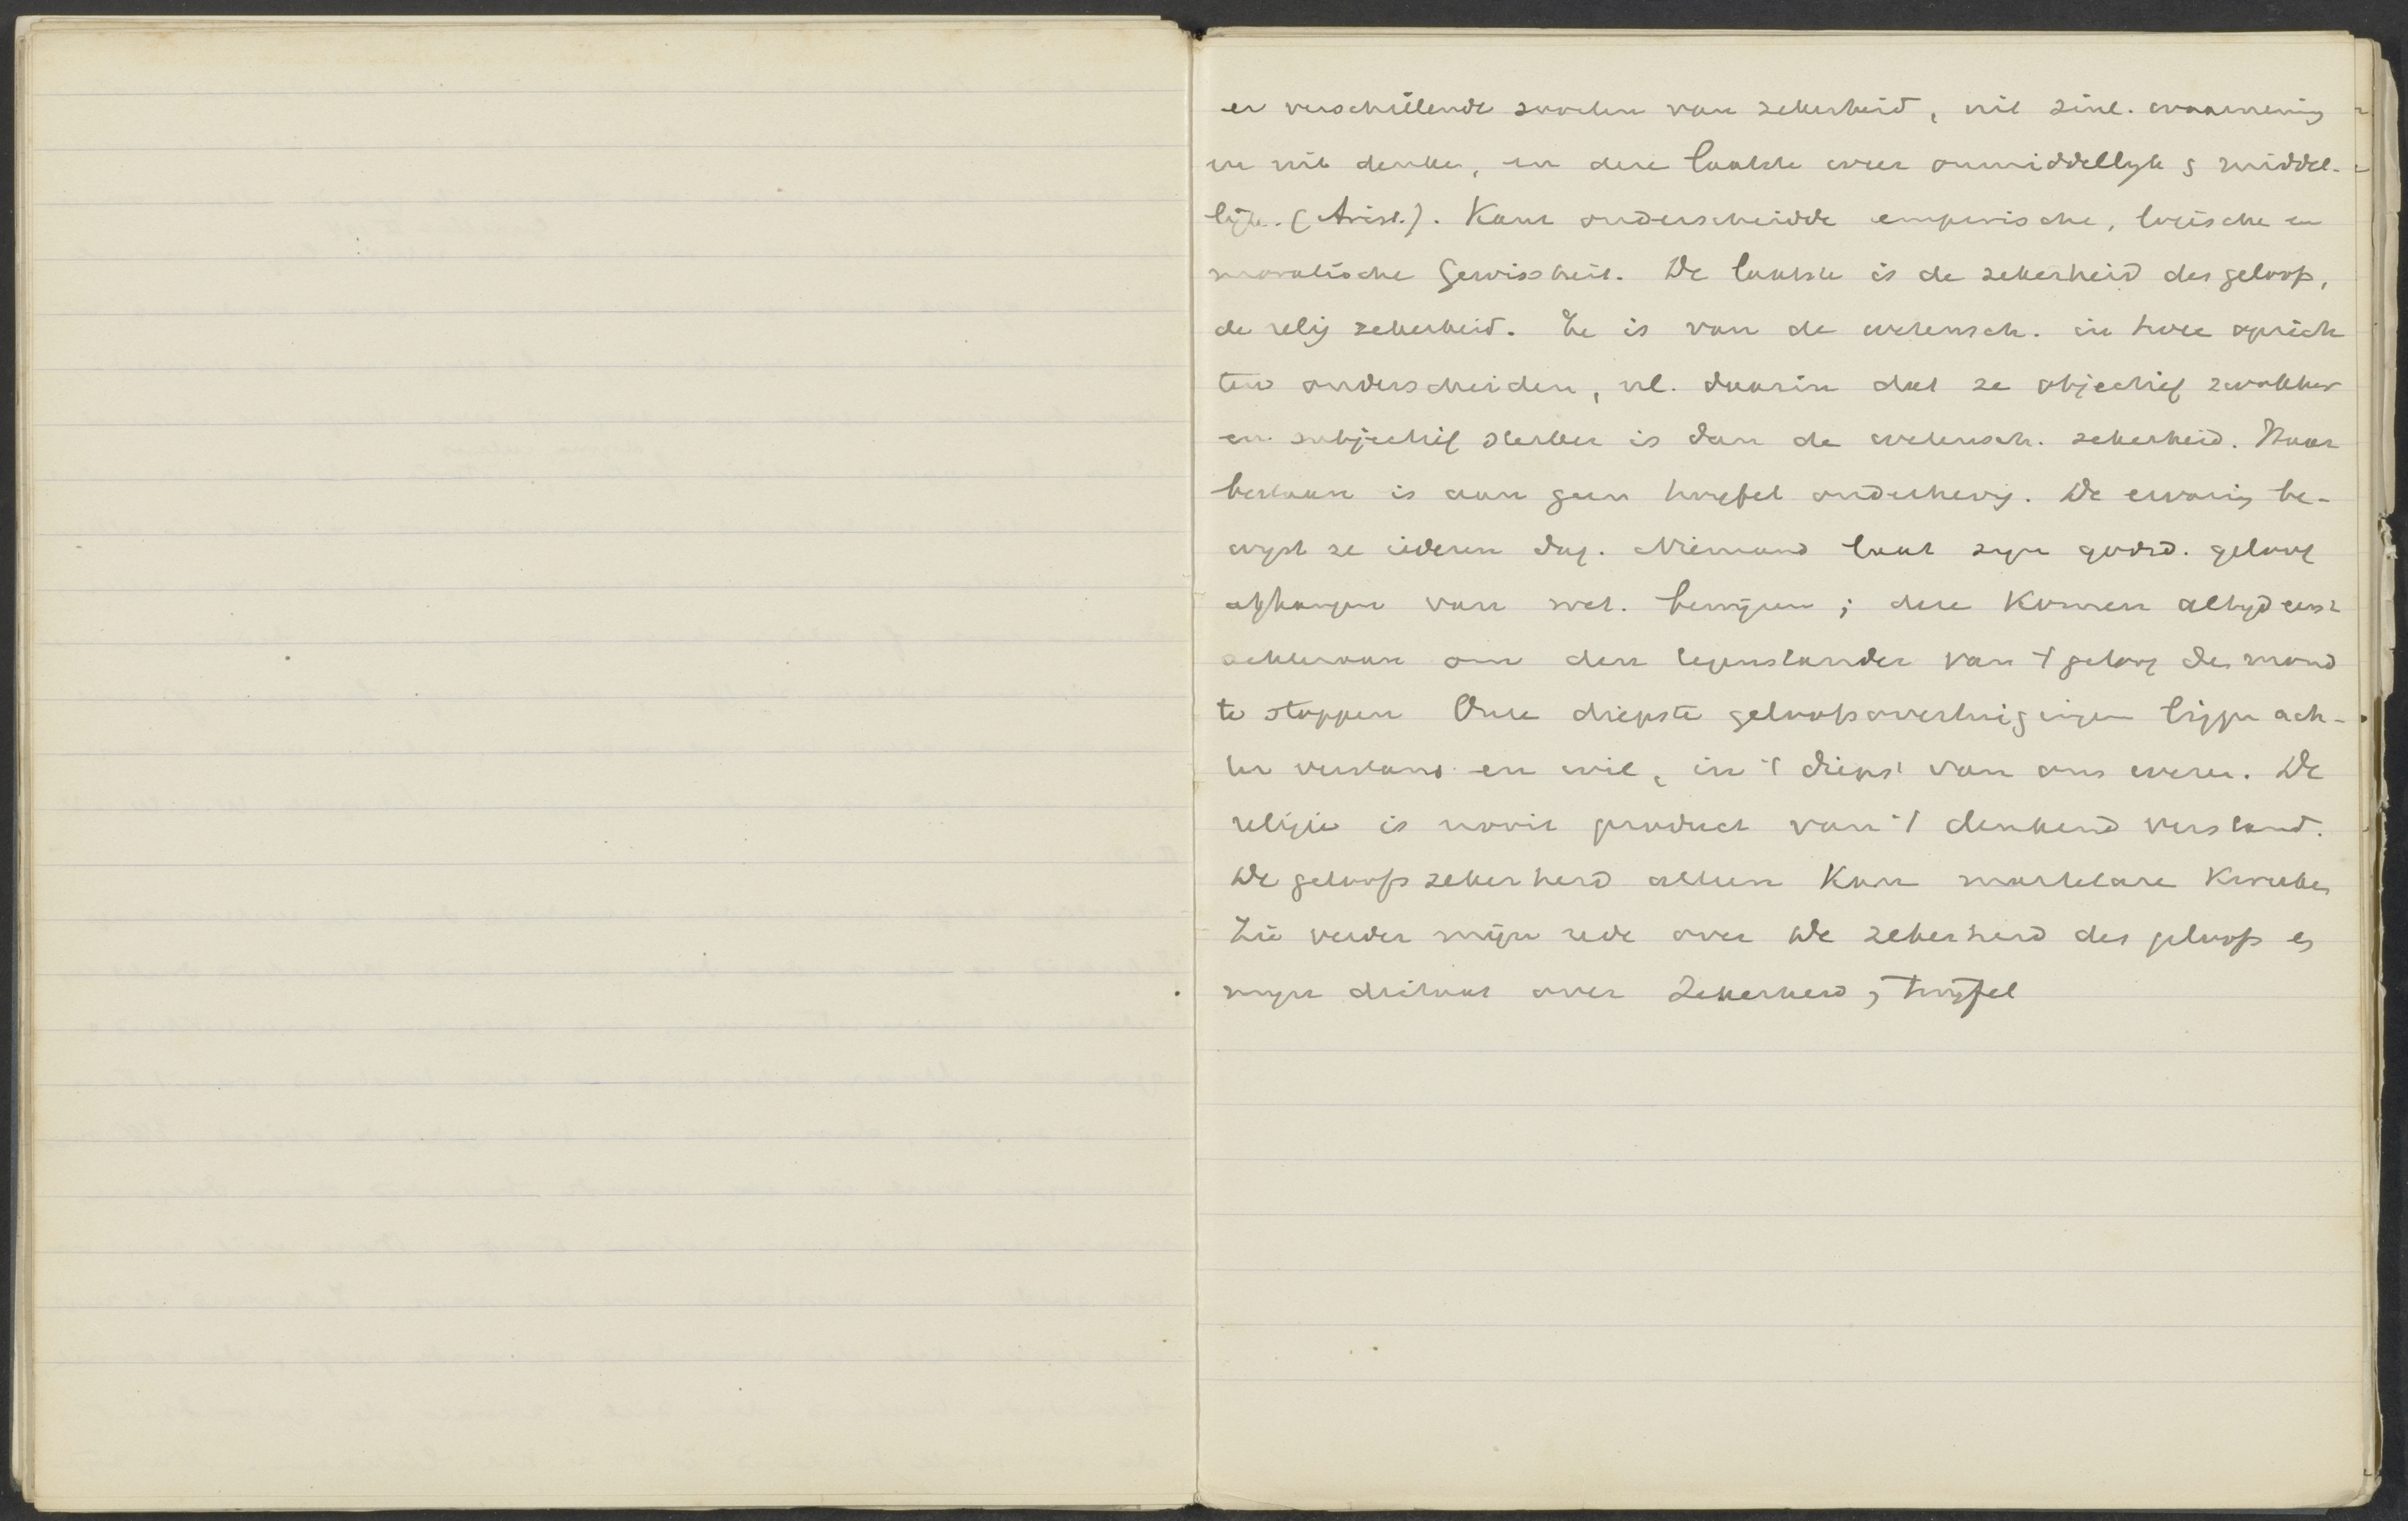 er verschillende soorten van zekerheid, uit zinl. waarneming
en uit denken, en deze laatste weer onmiddellyk & middel-
lijk. (Arist.). Kant onderscheidde empirische, logische en
moralische Gewissheit. De laatste is de zekerheid des geloofs,
de relig zekerheid. Ze is van de wetensch. in twee opzich
ten onderscheiden, nl. daarin dat ze objectief zwakker
en subjectief sterker is dan de wetensch. zekerheid. Haar
bestaan is aan geen twyfel onderhevig. De ervaring be-
wyst ze iederen dag. Niemand laat zyn godsd. geloof
afhangen van wet. bewijzen; deze komen altyd eerst
achteraan om den tegenstander van 't geloof den mond
te stoppen Onze diepste geloofsovertuigingen liggen ach-
ter verstand en wil, in 't diepst van ons wezen. De
religie is nooit product van 't denkend verstand.
De geloofszekerheid alleen kan martelare kweeken
Zie verder mijn rede over De zekerheid des geloofs en
myn dictaat over Zekerheid & twyfel